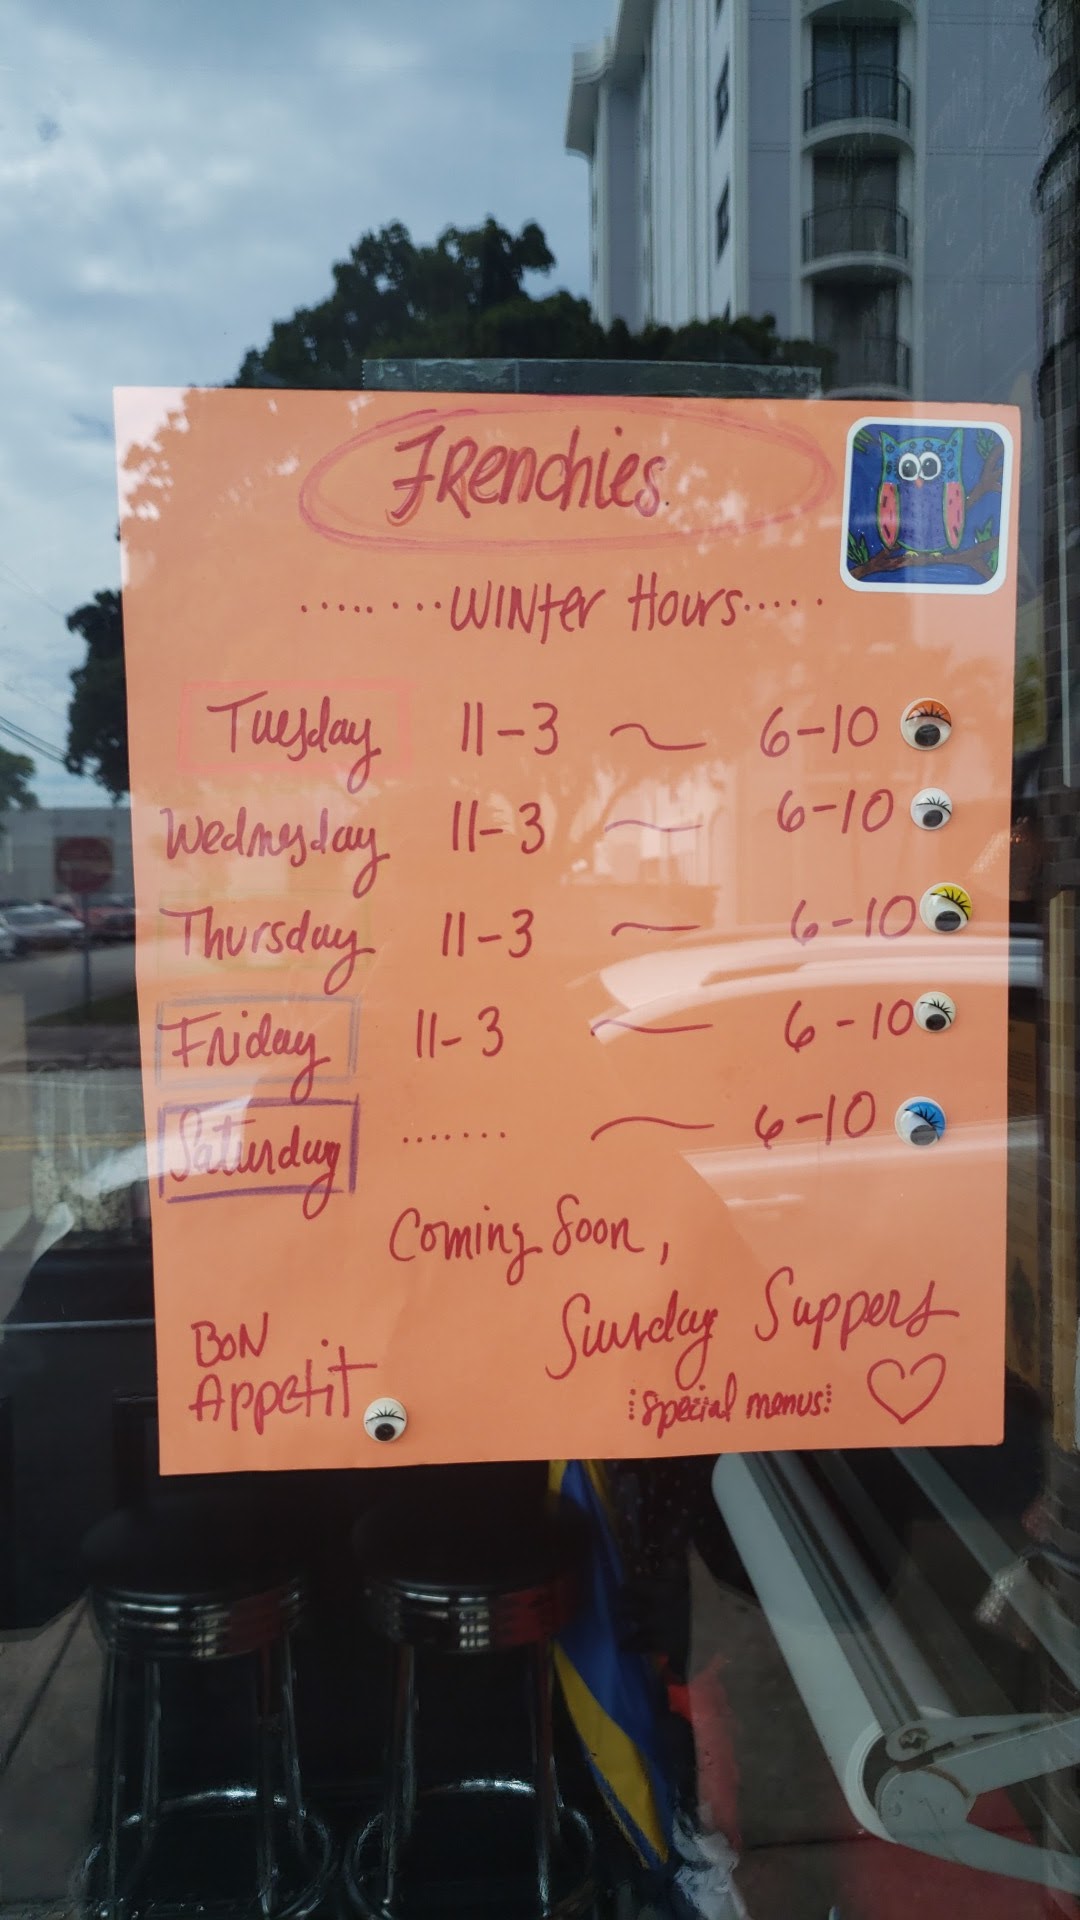 Frenchies.
........WINter Hours.....
Tuesday 11-3 ~ 6-10
Wednesday 11-3 ~ 6-10
Thursday 11-3 ~ 6-10
Friday 11-3 ~ 6-10
Saturday ....... ~ 6-10
Coming Soon,
Sunday Suppers
special menus
BoN
Appetit